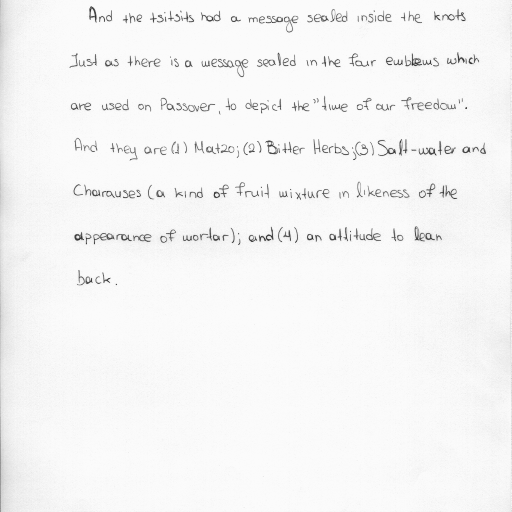 And the tsitsits had a message sealed inside the knots
Just as there is a message sealed in the four emblems which
are used on Passover, to depict the "time of our freedom".
And they are (1) Matzo; (2) Bitter Herbs; (3) Salt-water and
Charauses (a kind of fruit mixture in likeness of the
appearance of mortar); and (4) an attitude to lean
back.